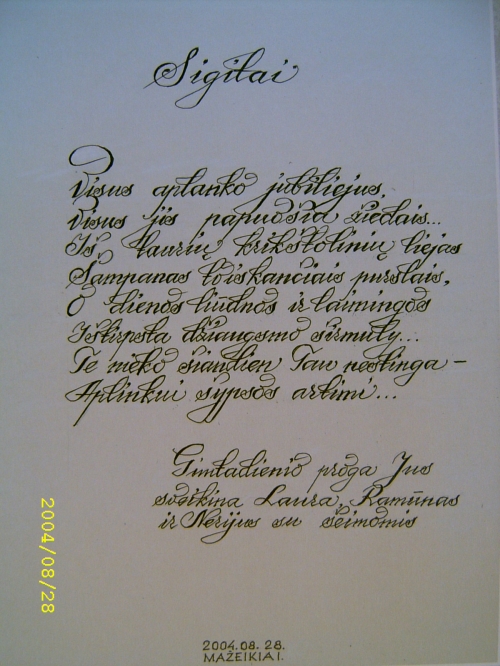 Sigitai
Visus aplanko jubiliejus,
Visus jis papuošia žiedais...
Iš taurių krikštolinių liejas
Šampanas tviskančiais purslais,
O dienos liūdnos ir laimingos
Ištirpsta džiaugsmo sūrmuly...
Te nieko šiandien Tau nestinga –
Aplinkui šypsos artimi...
Gimtadienio proga Jus
sveikina Laura, Ramūnas
ir Nerijus su šeimomis
2004.08.28.
MAŽEIKIAI.
2004/08/28